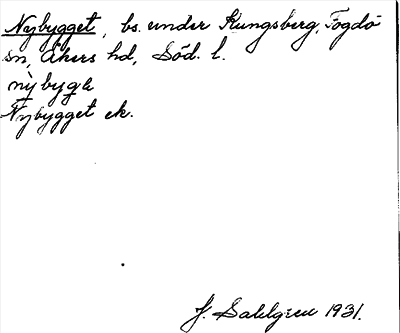 Nybygget, bs. under Kungsberg, Fogdö
sn, Åkers hd, Söd. l.
nỳbygε
Nybygget ek.
J. Sahlgren 1931.